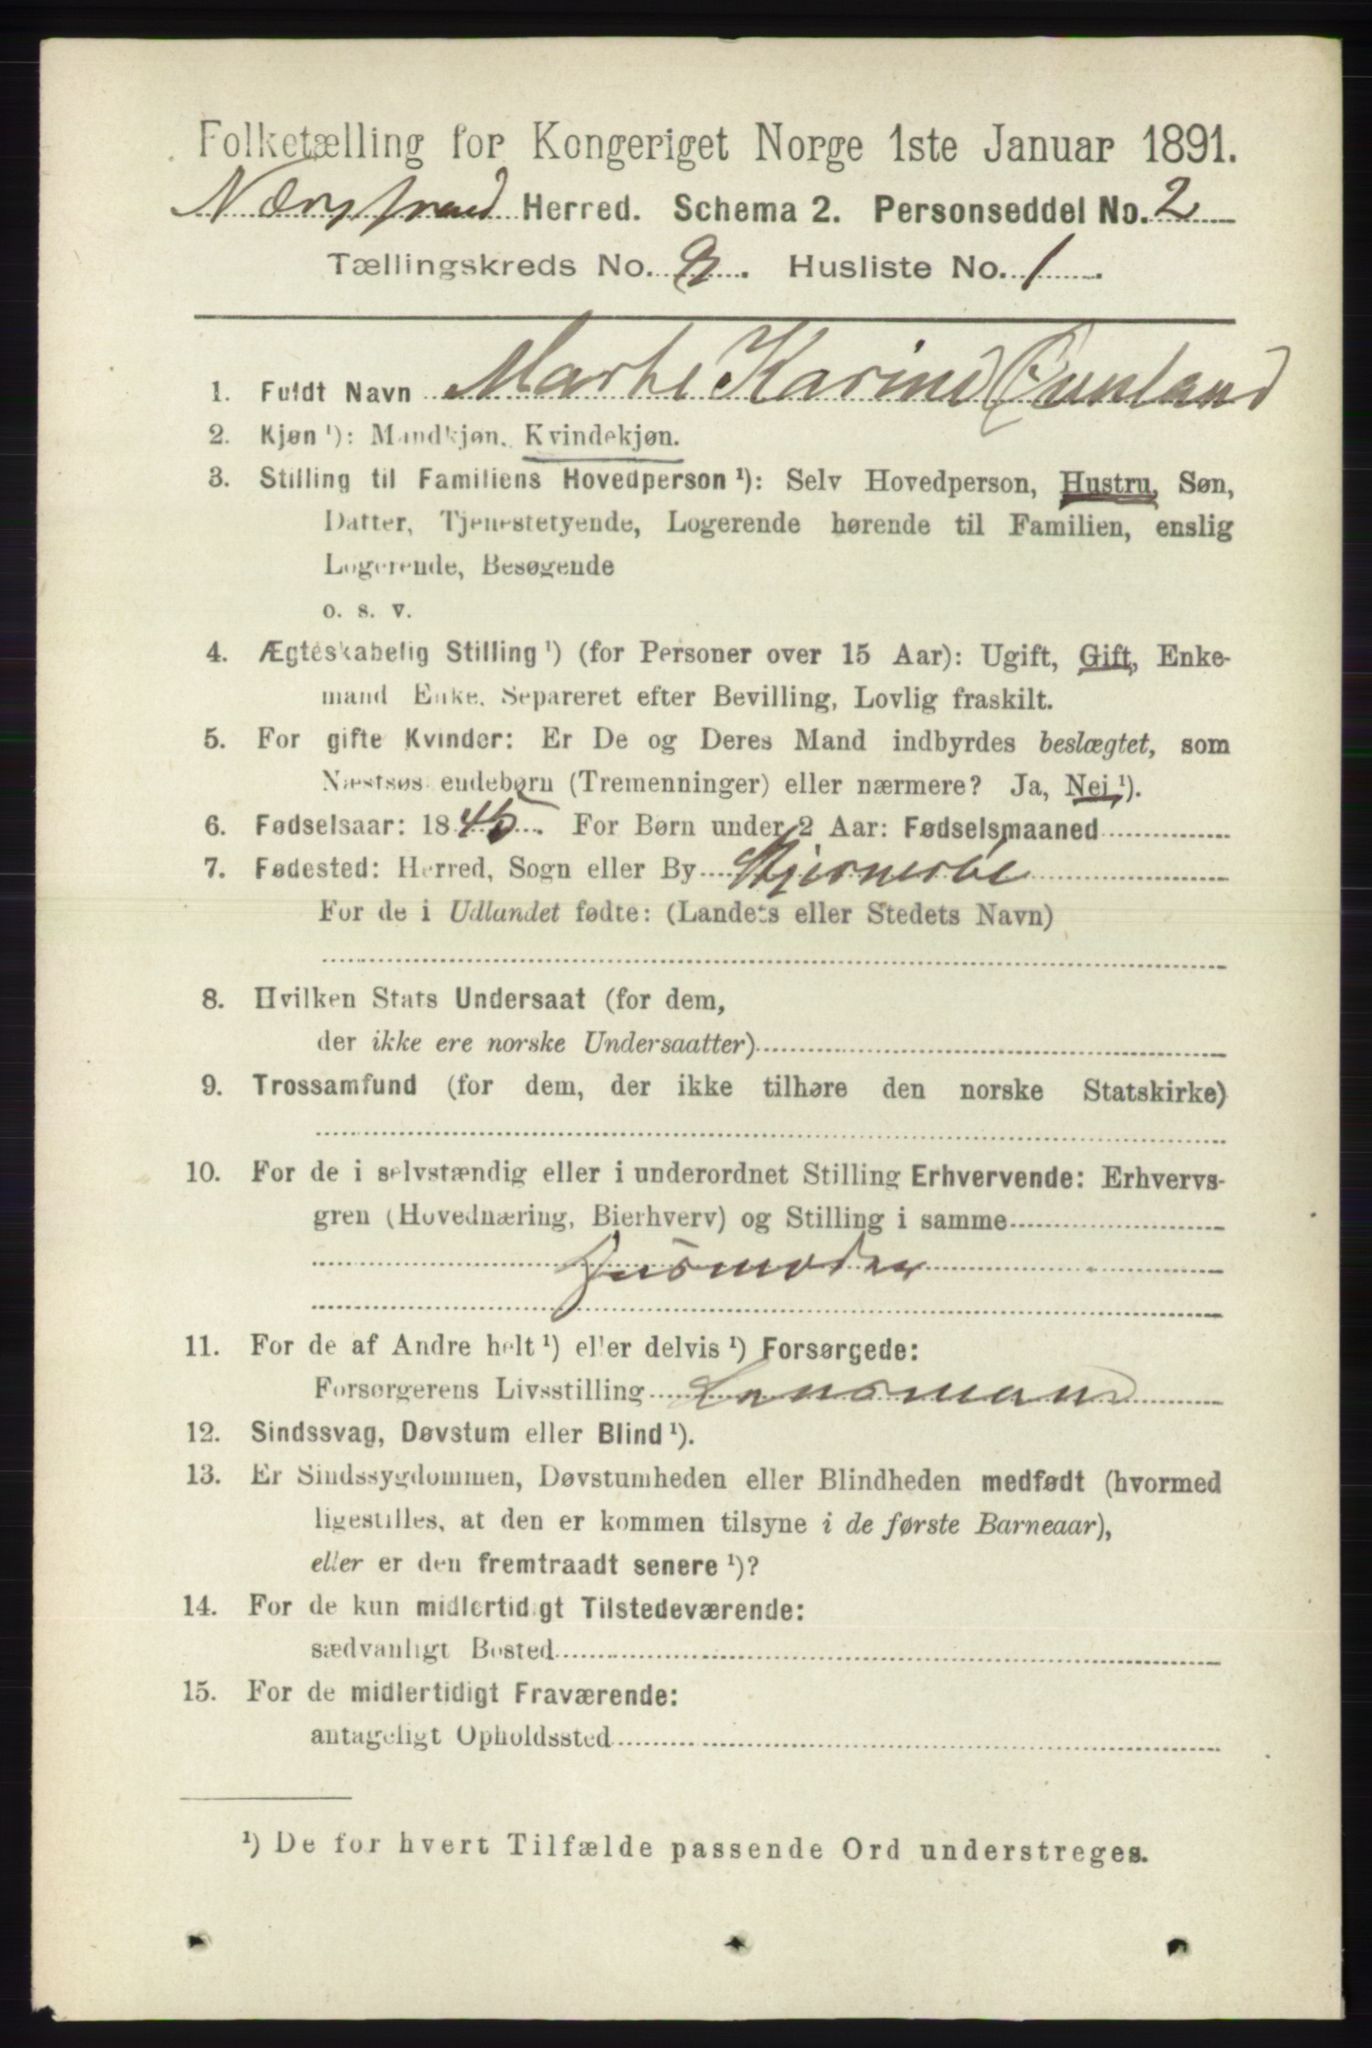 Folketælling for Kongeriget Norge 1ste Januar 1891.
Nærstrand Herred. Schema 2. Personseddel No. 2
Tællingskreds No. 2. Husliste No. 1.
1. Fuldt Navn Marte Karine
2. Kjøn ¹): Mandkjøn. Kvindekjøn.
3. Stilling til Familiens Hovedperson ¹): Selv Hovedperson, Hustru, Søn,
Datter, Tjenestetyende, Logerende hørende til Familien, enslig
Logerende, Besøgende
o. s. v.
4. Ægteskabelig Stilling ¹) (for Personer over 15 Aar): Ugift, Gift, Enke-
mand Enke. Separeret efter Bevilling, Lovlig fraskilt.
5. For gifte Kvinder: Er De og Deres Mand indbyrdes beslægtet, som
Næstsøskendebørn (Tremenninger) eller nærmere? Ja, Nei ¹).
6. Fødselsaar: 1845. For Børn under 2 Aar: Fødselsmaaned
7. Fødested: Herred, Sogn eller By Hjernerøe
For de i Udlandet fødte: (Landets eller Stedets Navn)
8. Hvilken Stats Undersaat (for dem,
der ikke ere norske Undersaatter)
9. Trossamfund (for dem, der ikke tilhøre den norske Statskirke)
10. For de i selvstændig eller i underordnet Stilling Erhvervende: Erhvervs-
gren (Hovednæring, Bierhverv) og Stilling i samme
Husmoder
11. For de af Andre helt ¹) eller delvis ¹) Forsørgede:
Forsørgerens Livsstilling Lensmand
12. Sindssvag, Døvstum eller Blind ¹).
13. Er Sindssygdommen, Døvstumheden eller Blindheden medfødt (hvormed
ligestilles, at den er kommen tilsyne i de første Barneaar),
eller er den fremtraadt senere ¹)?
14. For de kun midlertidigt Tilstedeværende:
sædvanligt Bosted
15. For de midlertidigt Fraværende:
antageligt Opholdssted
¹) De for hvert Tilfælde passende Ord understreges.